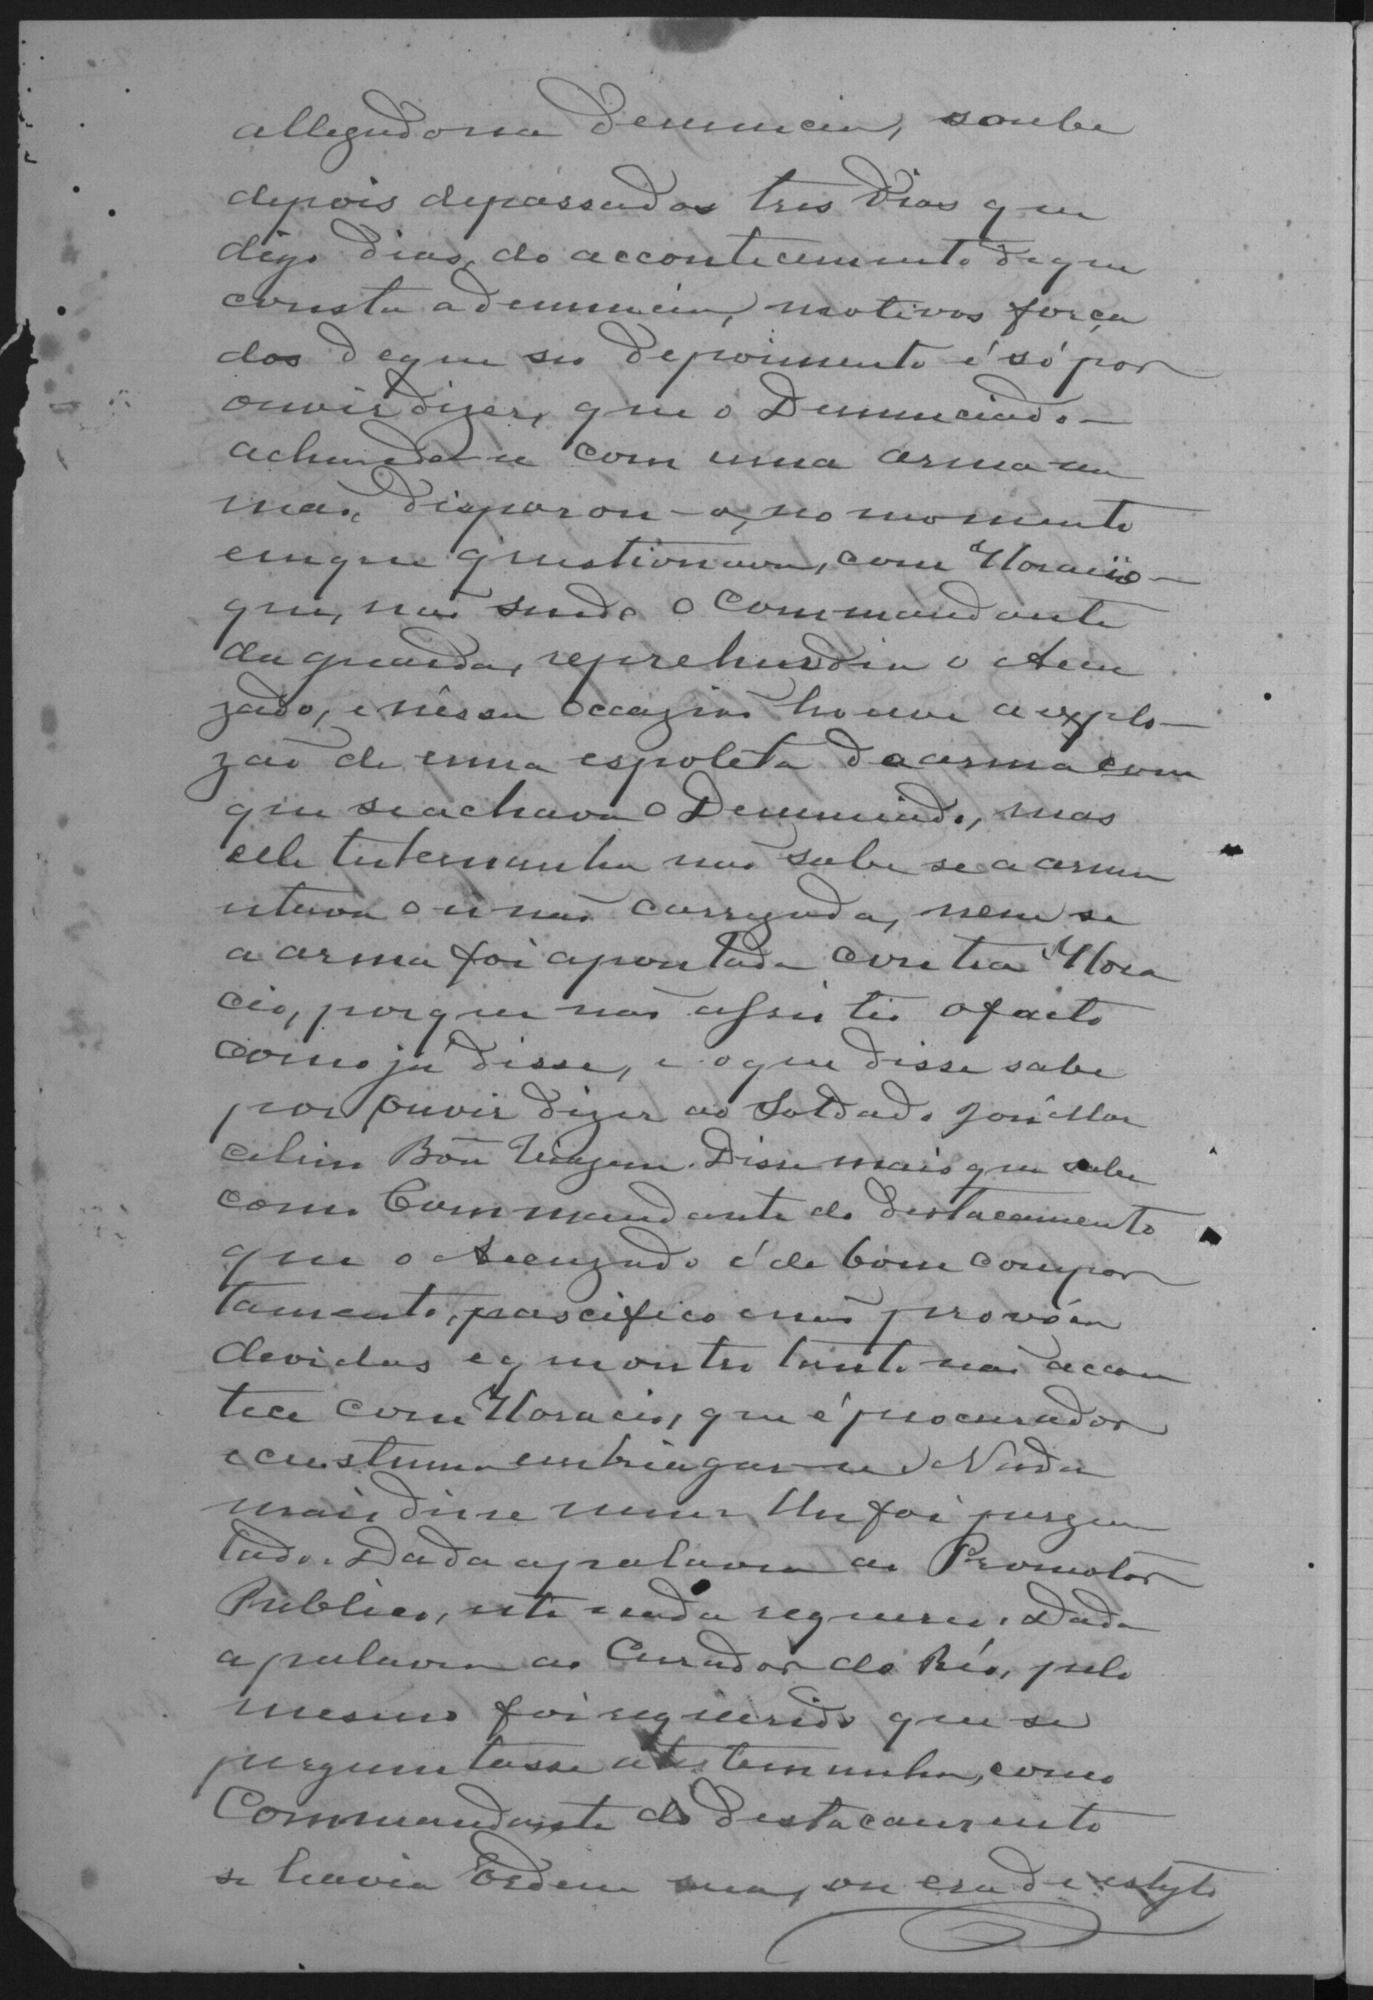 allegado na denuncia, soube
depois de passados tres dias que
digo dias, do accontecimento de que
consta a denuncia, motivos força
dos de que seo depoimento é só por
ouvir dizer, que o Denunciado
achando-se com uma arma na
mão, disparou-a, no momento
em que questionava, com Horacio
que, não sendo o Commandante
da guarda, reprehendia o Accu
zado, e néssa occazião houve a explo-
zão de uma espoleta da arma com
que se achava o Denunciado, mas
elle testemunha não sabe se a arma
estava ou não carregada, nem se
a arma foi apontada contra Hora
cio, porque não assistio o facto
como já disse, e o que disse sabe
por ouvir dizer ao Soldado José Mar
celino Bôa Viagem. Disse mais que sabe
como Commandante do destacamento
que o Accuzado é de bom compor
tamento, pascifico e não provóca
devidas e que outro tanto não acon
tece com Horacio, que é procurador
e custuma embriagar-se. Nada
mais disse nem lhe foi pergun
tado. Dada a palavra ao Promotor
Publico, este nada requereu. Dada
a palavra ao Curador do Réo, pelo
mesmo foi requerido que se
perguntasse a testemunha, como
Commandante do destacamento
se havia Ordem sua, ou era de estylo